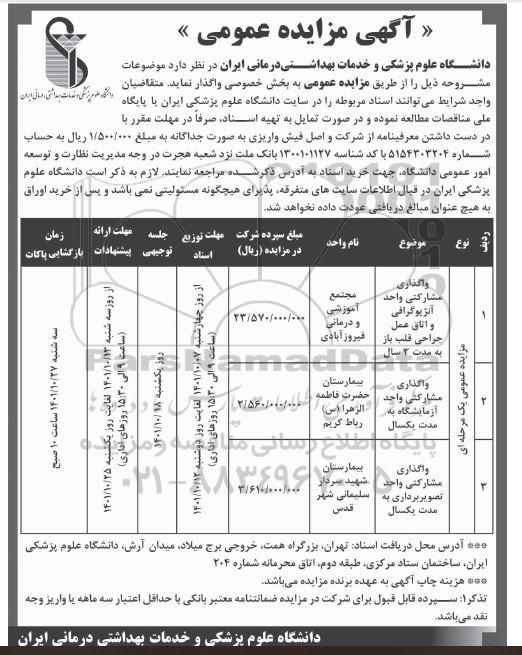 « آگهی مزایده عمومی »
دانشگاه علوم پزشکی و خدمات بهداشتی درمانی ایران
دانشــگاه علوم پزشکی و خدمات بهداشــتی‌درمانی ایران در نظر دارد موضوعات
مشــروحه ذیل را از طریق مزایده عمومی به بخش خصوصی واگذار نماید. متقاضیان
واجد شرایط می‌توانند اسناد مربوطه را در سایت دانشگاه علوم پزشکی ایران یا پایگاه
ملی مناقصات مطالعه نموده و در صورت تمایل به تهیه اســناد، صرفاً در مهلت مقرر با
در دست داشتن معرفینامه از شرکت و اصل فیش واریزی به صورت جداگانه به مبلغ ۱/۵۰۰/۰۰۰ ریال به حساب
شــماره ۵۱۵۴۳۰۳۲۰۴ با کد شناسه ۱۳۰۰۱۰۱۱۲۷ بانک ملت نزد شعبه هجرت در وجه مدیریت نظارت و توسعه
امور عمومی دانشگاه، جهت خرید اسناد به آدرس ذکرشــده مراجعه نمایند. لازم به ذکر است دانشگاه علوم
پزشکی ایران در قبال اطلاعات سایت های متفرقه، پذیرای هیچگونه مسئولیتی نمی باشد و پس از خرید اوراق
به هیچ عنوان مبالغ دریافتی عودت داده نخواهد شد.
ردیف
نوع
موضوع
نام واحد
مبلغ سپرده شرکت در مزایده (ریال)
مهلت توزیع اسناد
جلسه توجیهی
مهلت ارائه پیشنهادات
زمان بازگشایی پاکات
مزایده عمومی یک مرحله ای
۱
واگذاری مشارکتی واحد آنژیوگرافی و اتاق عمل جراحی قلب باز به مدت ۳ سال
مجتمع آموزشی و درمانی فیروزآبادی
۲۳/۵۷۰/۰۰۰/۰۰۰
۲
واگذاری مشارکتی واحد آزمایشگاه به مدت یکسال
بیمارستان حضرت فاطمه الزهرا (س) رباط کریم
۲/۵۶۰/۰۰۰/۰۰۰
۳
واگذاری مشارکتی واحد تصویربرداری به مدت یکسال
بیمارستان شهید سردار سلیمانی شهر قدس
۳/۶۱۰/۰۰۰/۰۰۰
از روز چهارشنبه ۱۴۰۱/۱۰/۰۷ لغایت روز دوشنبه ۱۴۰۱/۱۰/۱۲
(ساعت ۹ الی ۱۵:۳۰ روزهای اداری)
روز یکشنبه ۱۴۰۱/۱۰/۱۸
از روزسه شنبه ۱۴۰۱/۱۰/۱۳ لغایت روز یکشنبه ۱۴۰۱/۱۰/۲۵
(ساعت ۹ الی ۱۵:۳۰ روزهای اداری)
سه شنبه ۱۴۰۱/۱۰/۲۷ ساعت ۱۰ صبح
ParsNamadData
پایگاه اطلاع رسانی مناقصه و مزایده
۰۲۱-۸۸۳۴۹۶۷۰-۵
*** آدرس محل دریافت اسناد: تهران، بزرگراه همت، خروجی برج میلاد، میدان آرش، دانشگاه علوم پزشکی
ایران، ساختمان ستاد مرکزی، طبقه دوم، اتاق محرمانه شماره ۲۰۴
*** هزینه چاپ آگهی به عهده برنده مزایده می‌باشد.
تذکر۱: ســپرده قابل قبول برای شرکت در مزایده ضمانتنامه معتبر بانکی با حداقل اعتبار سه ماهه یا واریز وجه
نقد می‌باشد.
دانشگاه علوم پزشکی و خدمات بهداشتی درمانی ایران